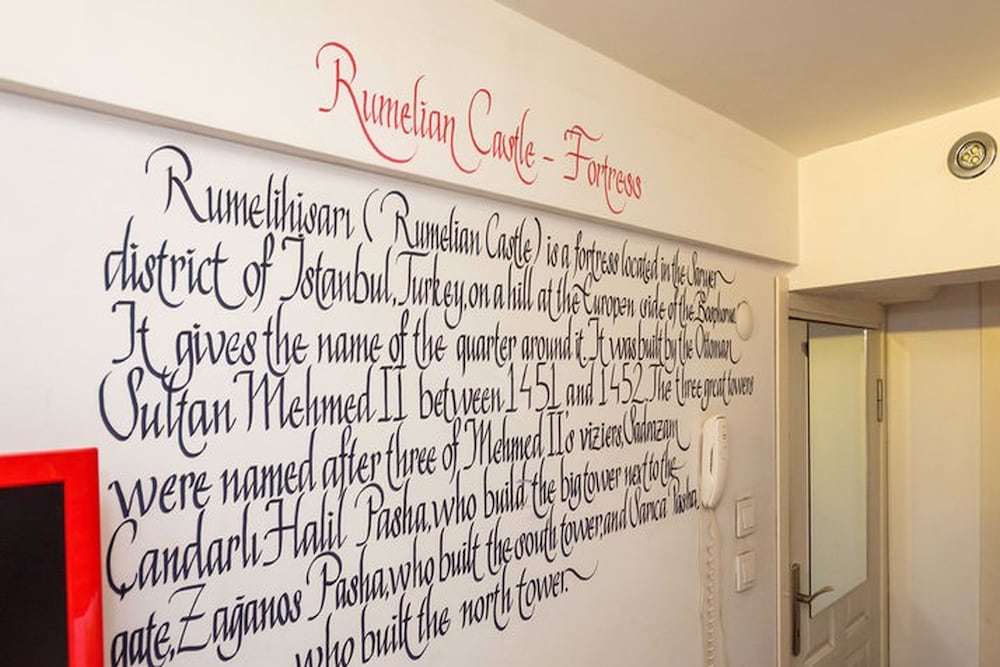 Rumelian Castle - Fortress
Rumelihisarı (Rumelian Castle) is a fortress located in the Sarıyer
district of İstanbul, Turkey, on a hill at the Europen side of the Bosphorus.
It gives the name of the quarter around it. It was built by the Ottoman
Sultan Mehmed II between 1451 and 1452. The three great towers
were named after three of Mehmed II's viziers, Sadrazam
Candarlı Halil Pasha, who build the big tower next to the
gate, Zağanos Pasha, who built the south tower, and Sarıca Pasha,
who built the north tower.